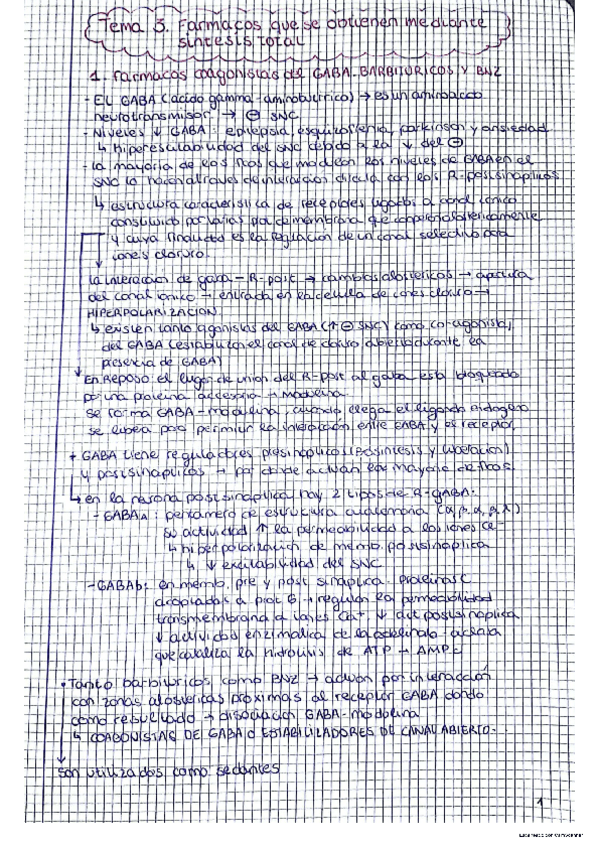 Tema 3. Farmacos que se obtienen mediante
sintesis total
1. Farmacos coagonistas del GABA. BARBITÚRICOS Y BNZ
- El GABA (ácido gamma-aminobutírico) → es un aminoácido
neurotransmisor → ⊖ SNC
- Niveles ↓ GABA: epilepsia, esquizofrenia, parkinson y ansiedad
↳ hiperexcitabilidad del SNC debido a la ↓ del ⊖
- La mayoria de los fcos que modulan los niveles de GABA en el
SNC lo hacen a traves de interaccion directa con los R-postsinapticos
↳ estructura caracteristica de receptores ligados a canal ionico
constituido por varias de membrana que alostericamente
y cuya finalidad es la regulación de un canal selectivo para
iones cloruro.
La interaccion de gaba - R-post → cambios alostericos → apertura
del canal ionico → entrada en la celula de iones cloruro →
HIPERPOLARIZACION.
↳ existen tanto agonistas del GABA (↑ ⊖ SNC) como co-agonistas
del GABA (estabilizan el canal de cloruro abierto durante la
presencia de GABA)
En reposo el lugar de union del R-post al gaba esta bloqueado
por una proteina accesoria → modulina.
se forma GABA-modulina, cuando llega el ligando endogeno
se libera para permitir la interaccion entre GABA y el receptor
+ GABA tiene reguladores presinapticos (biosintesis y liberacion)
y postsinapticos → por donde actuan la mayoria de fcos.
↳ en la neurona postsinaptica hay 2 tipos de R-GABA:
- GABAa: pentamero de estructura cuaternaria
su actividad ↑ la permeabilidad a los iones Cl-
↳ hiperpolarizacion de memb. postsinaptica
↳ ↓ excitabilidad del SNC
- GABAb: en memb. pre y post sinaptica. Proteinas
acopladas a prot G → regulan la permeabilidad
transmembrana a iones Ca+. ↓ act postsinaptica
↓ actividad enzimatica de la adenilato-ciclasa
que cataliza la hidrolisis de ATP → AMPc
• Tanto barbituricos, como BNZ → actuan por interacción
con zonas alostericas proximas al receptor GABA dando
como resultado → disociacion GABA-modulina
↳ COAGONISTAS DE GABA o ESTABILIZADORES DE CANAL ABIERTO.
son utilizados como sedantes
1